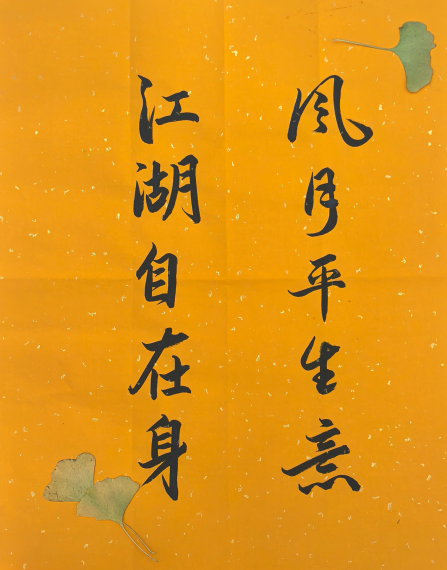 风月平生意
江湖自在身